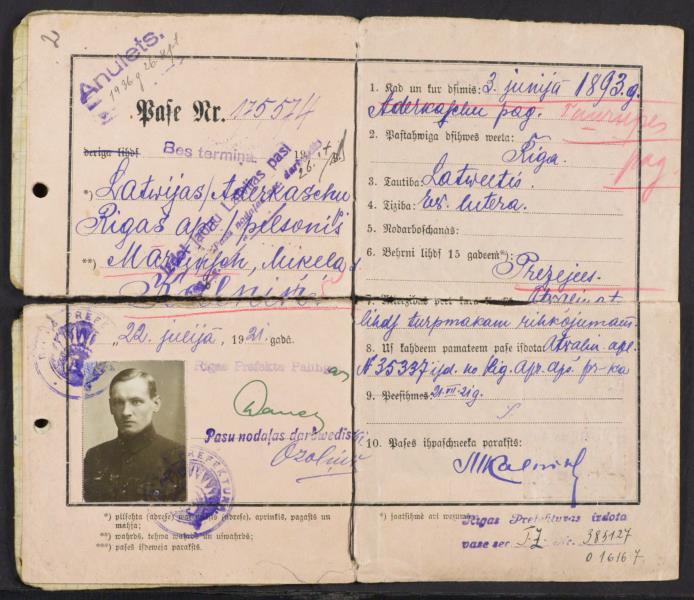 2
Anulets.
1936 g 26.
Pase Nr. 175574
deriga lihds Bes termiņa. 19
26.
*) Latwijas/Aderkaschu
Rigas apr. pilsonis
**) Mahrtiņsch, Mikeļa d
Kalniņš
"22. julijā, 1921. gadā.
Rigas Prefekta Palihgs
Pasu nodaļas darbwedis
Ozoliņš
*) pilsehta (adrese) wai walsts (adrese), aprinkis, pagasts un
mahja;
**) wahrds, tehwa wahrds un uswahrds;
***) pases isdeweja paraksts.
1. Kad un kur dsimis: 3. junijā 1893.g.
Aderkaschu pag. Taurupes
pag.
2. Pastahwiga dsihwes weeta:
Rīga
3. Tautiba: Latweetis.
4. Tiziba: Ev. lutera.
5. Nodarboschanās:
6. Behrni lihds 15 gadeem*):
Prezejees.
7.
lihds turpmakam rihkojumam
8. Us kahdeem pamateem pase isdota Atvaļin. apl.
N 35337 isd. no Rig. apr. aps. pr-ka
9. Peesihmes: 21.VII.21g.
10. Pases ihpaschneeka paraksts:
MKalniņš
*) jaatsihmē ari wezums.
Rigas Prefekturas izdota
pase ser. TZ Nr. 385127
016167